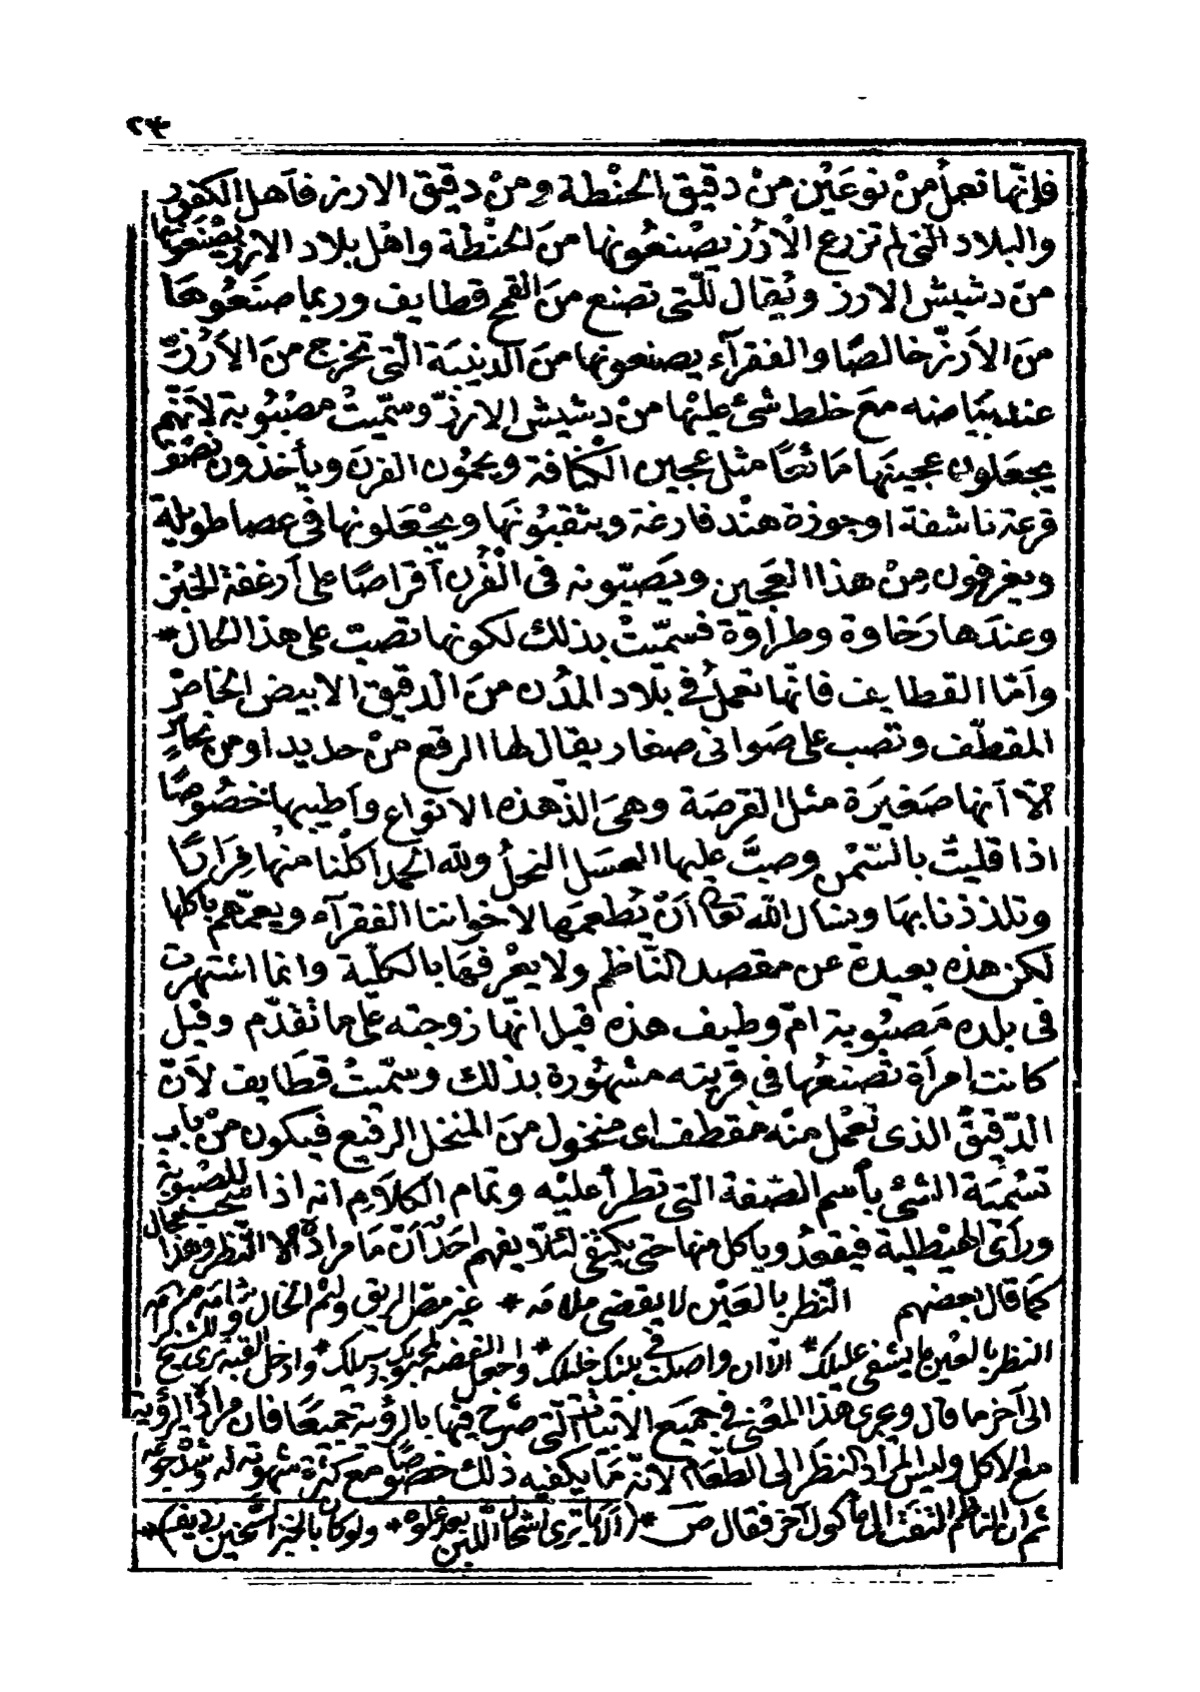 فانّها تعمل من نوعَيْن منْ دقيق الحنْطة ومنْ دقيق الارز فآهل الكفور
والبلاد التى لم تزرع الْارُز يصْنعُونها منَ الحنْطة واهْل بلاد الارز يصْنعُونها
منْ دشيش الارز ويُقال للّتى تصنع منَ القمح قطايف وربما صنَعُوها
منَ الاَرزّ خالصًا والفقرآء يصنعونها منَ الدنيبَة الّتى تخرج منَ الاَرُزّ
عند بيَاضه معَ خلط شئ عليْها منْ دشيش الارزّ وسمّيتْ مصْبُوبة لاَنّهم
يجعَلون عجينَها مَائعًا مثل عجين الكُنافة ويحمُون الفرنَ ويأخذون نصْفَ
قرعة ناشفة اوجوزة هنْد فارغة ويثقبُونَها ويجْعَلونها فى عصا طويلة
ويغرفون منْ هذا العَجين ويَصبّونه فى الْفُرن آقراصًا على اَرغفة الخبْز
وعندَها رَخاوة وطرَاوَة فسمّيتْ بذلك لكونها تصبّ على هذا الحال *
واَمّا القطايف فانّها تعملُ فى بلاد المدُن منَ الدقيق الابيض الخاصّ
المقطّف وتصب على صَوانى صغار يقال لها الرقع منْ حديد اومن نحاس
الّا اَنها صَغيرَة مثل القرصَة وهىَ الذّ هذه الانواع واَطيبها خصُوصًا
اذا قليتْ بالسّمْن وصبَّ عليها العسَل النحلُ ولله الحمد اكلْنا منها مِرَارًا
وتلذذنا بهَا ونسال الله تعالى اَنْ يُطعمَها لاخواننا الفقرآء ويعمّهم باكلها
لكن هذه بعيدة عن مقصد النّاظم ولا يعْرفهَا بالكلّية وانما اشتهرت
فى بلده مَصبُوبة امّ وطيف هذه قيل انّها زوجته على ما تقدّم وقيل
كانت امرآة تصْنعُها فى قريته مشهُورة بذلك وسمّيتْ قطَايف لاَنّ
الدّقيقَ الذى تعْمل منْه مقطف اى منخول منَ المنخل الرفيع فيكون منْ باب
تسْميَة الشئ باَسم الصّفة التى تطرأ عليْه وتمام الكلامِ انه اذا سحب للمصْبوبة
ورآى الهيْطلية فيقعُد وياكل منها حتى يكتفى لئلّا يفهم احَدٌ اَنّ مَا مرادهُ الّا النّظر وهذا محال
كمَا قال بعضهم النّظر بالعَيْن لا يقضى ملامَه * غير مصّ الريق ولثم الخال
النظر بالعيْن ما يشفى عليلك * الّا ان واصلت فى بيتك خليلك * وادخل القبة ترى
الى آخر ما قال ويجرى هذا المعْنى فى جميَع الابيَات الّتى صَرّح فيها بالرؤية جميعًا فان مرادهُ الرؤية
مع الاكل وليسَ المرَاد النظرَ الى الطّعَام لانّه مَا يكفيه ذلك خصُوصًا مع كثرة شهوته له وشدّة جوعه
ثم ان الناظم التفت الى مأكول آخر فقال صَ * (اَلا ما ترى اشحال اللّبن بعدغلوه * ولو كان بالخبز السّخين رديف) *